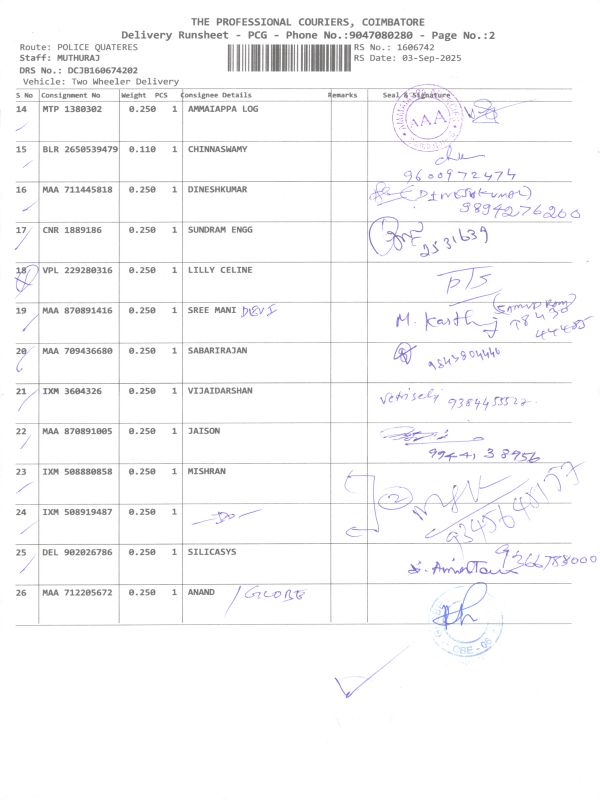 THE PROFESSIONAL COURIERS, COIMBATORE
Delivery Runsheet - PCG - Phone No.:9047080280 - Page No.:2
Route: POLICE QUATERES RS No.: 1606742
Staff: MUTHURAJ RS Date: 03-Sep-2025
DRS No.: DCJB160674202
Vehicle: Two Wheeler Delivery
S No Consignment No Weight PCS Consignee Details Remarks Seal & Signature
14 MTP 1380302 0.250 1 AMMAIAPPA LOG AAA
15 BLR 2650539479 0.110 1 CHINNASWAMY
9600972474
16 MAA 711445818 0.250 1 DINESHKUMAR (DINESHKUMAR)
9894276200
17 CNR 1889186 0.250 1 SUNDRAM ENGG 2531639
18 VPL 229280316 0.250 1 LILLY CELINE P/S
19 MAA 870891416 0.250 1 SREE MANI DEVI M. Karthi
78430
44485
20 MAA 709436680 0.250 1 SABARIRAJAN 9843804446
21 IXM 3604326 0.250 1 VIJAIDARSHAN Vetriselvi 9384455522
22 MAA 870891005 0.250 1 JAISON
9944138956
23 IXM 508880858 0.250 1 MISHRAN
2
24 IXM 508919487 0.250 1 -Do- 9345648157
25 DEL 902026786 0.250 1 SILICASYS 9366788000
26 MAA 712205672 0.250 1 ANAND / GLOBE
CBE - 06